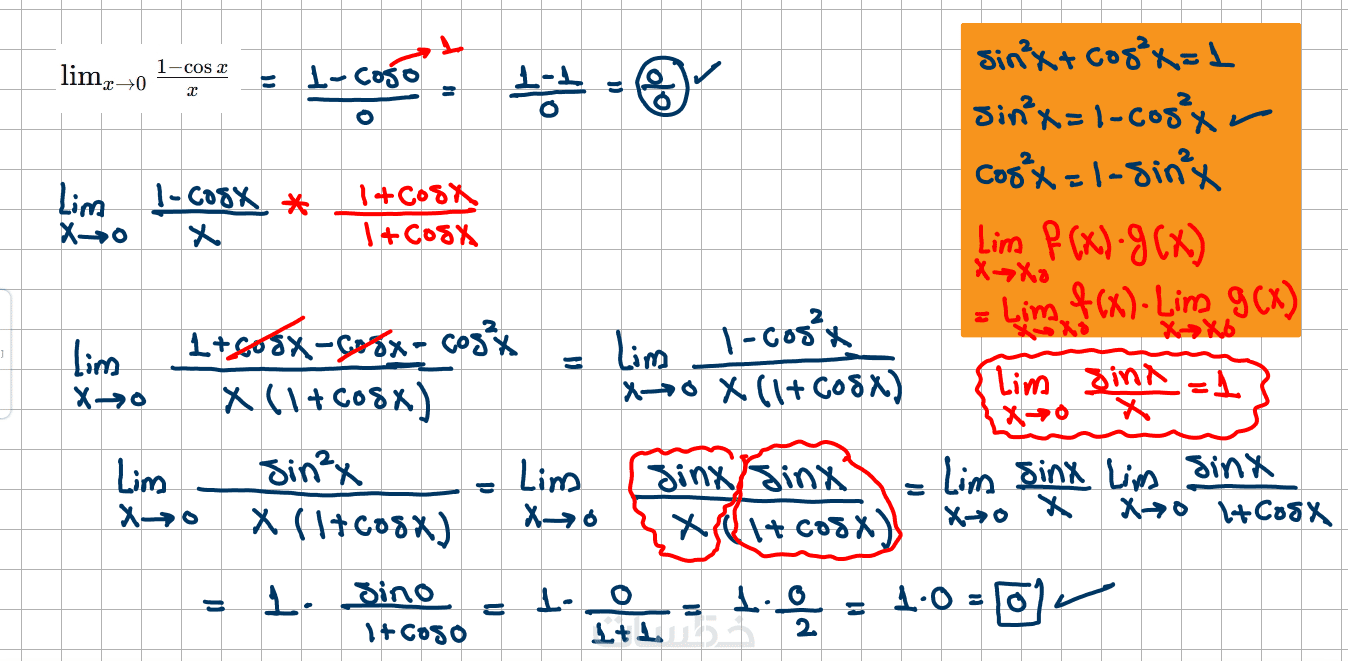 lim_{x→0} (1−cos x)/x = (1-cos0)/0 → 1 = (1-1)/0 = 0/0 ✓
Lim x→0 (1-cosx)/x * (1+cosx)/(1+cosx)
Lim x→0 (1+cosx-cosx-cos²x)/(x(1+cosx)) = Lim x→0 (1-cos²x)/(x(1+cosx))
Lim x→0 sin²x/(x(1+cosx)) = Lim x→0 (sinx sinx)/(x(1+cosx)) = Lim x→0 sinx/x Lim x→0 sinx/(1+cosx)
= 1· sin0/(1+cos0) = 1· 0/(1+1) = 1·0/2 = 1·0 = 0 ✓
sin²x+cos²x=1
sin²x=1-cos²x ✓
cos²x=1-sin²x
Lim x→x0 f(x)·g(x)
= Lim x→x0 f(x)·Lim x→x0 g(x)
Lim x→0 sinx/x = 1